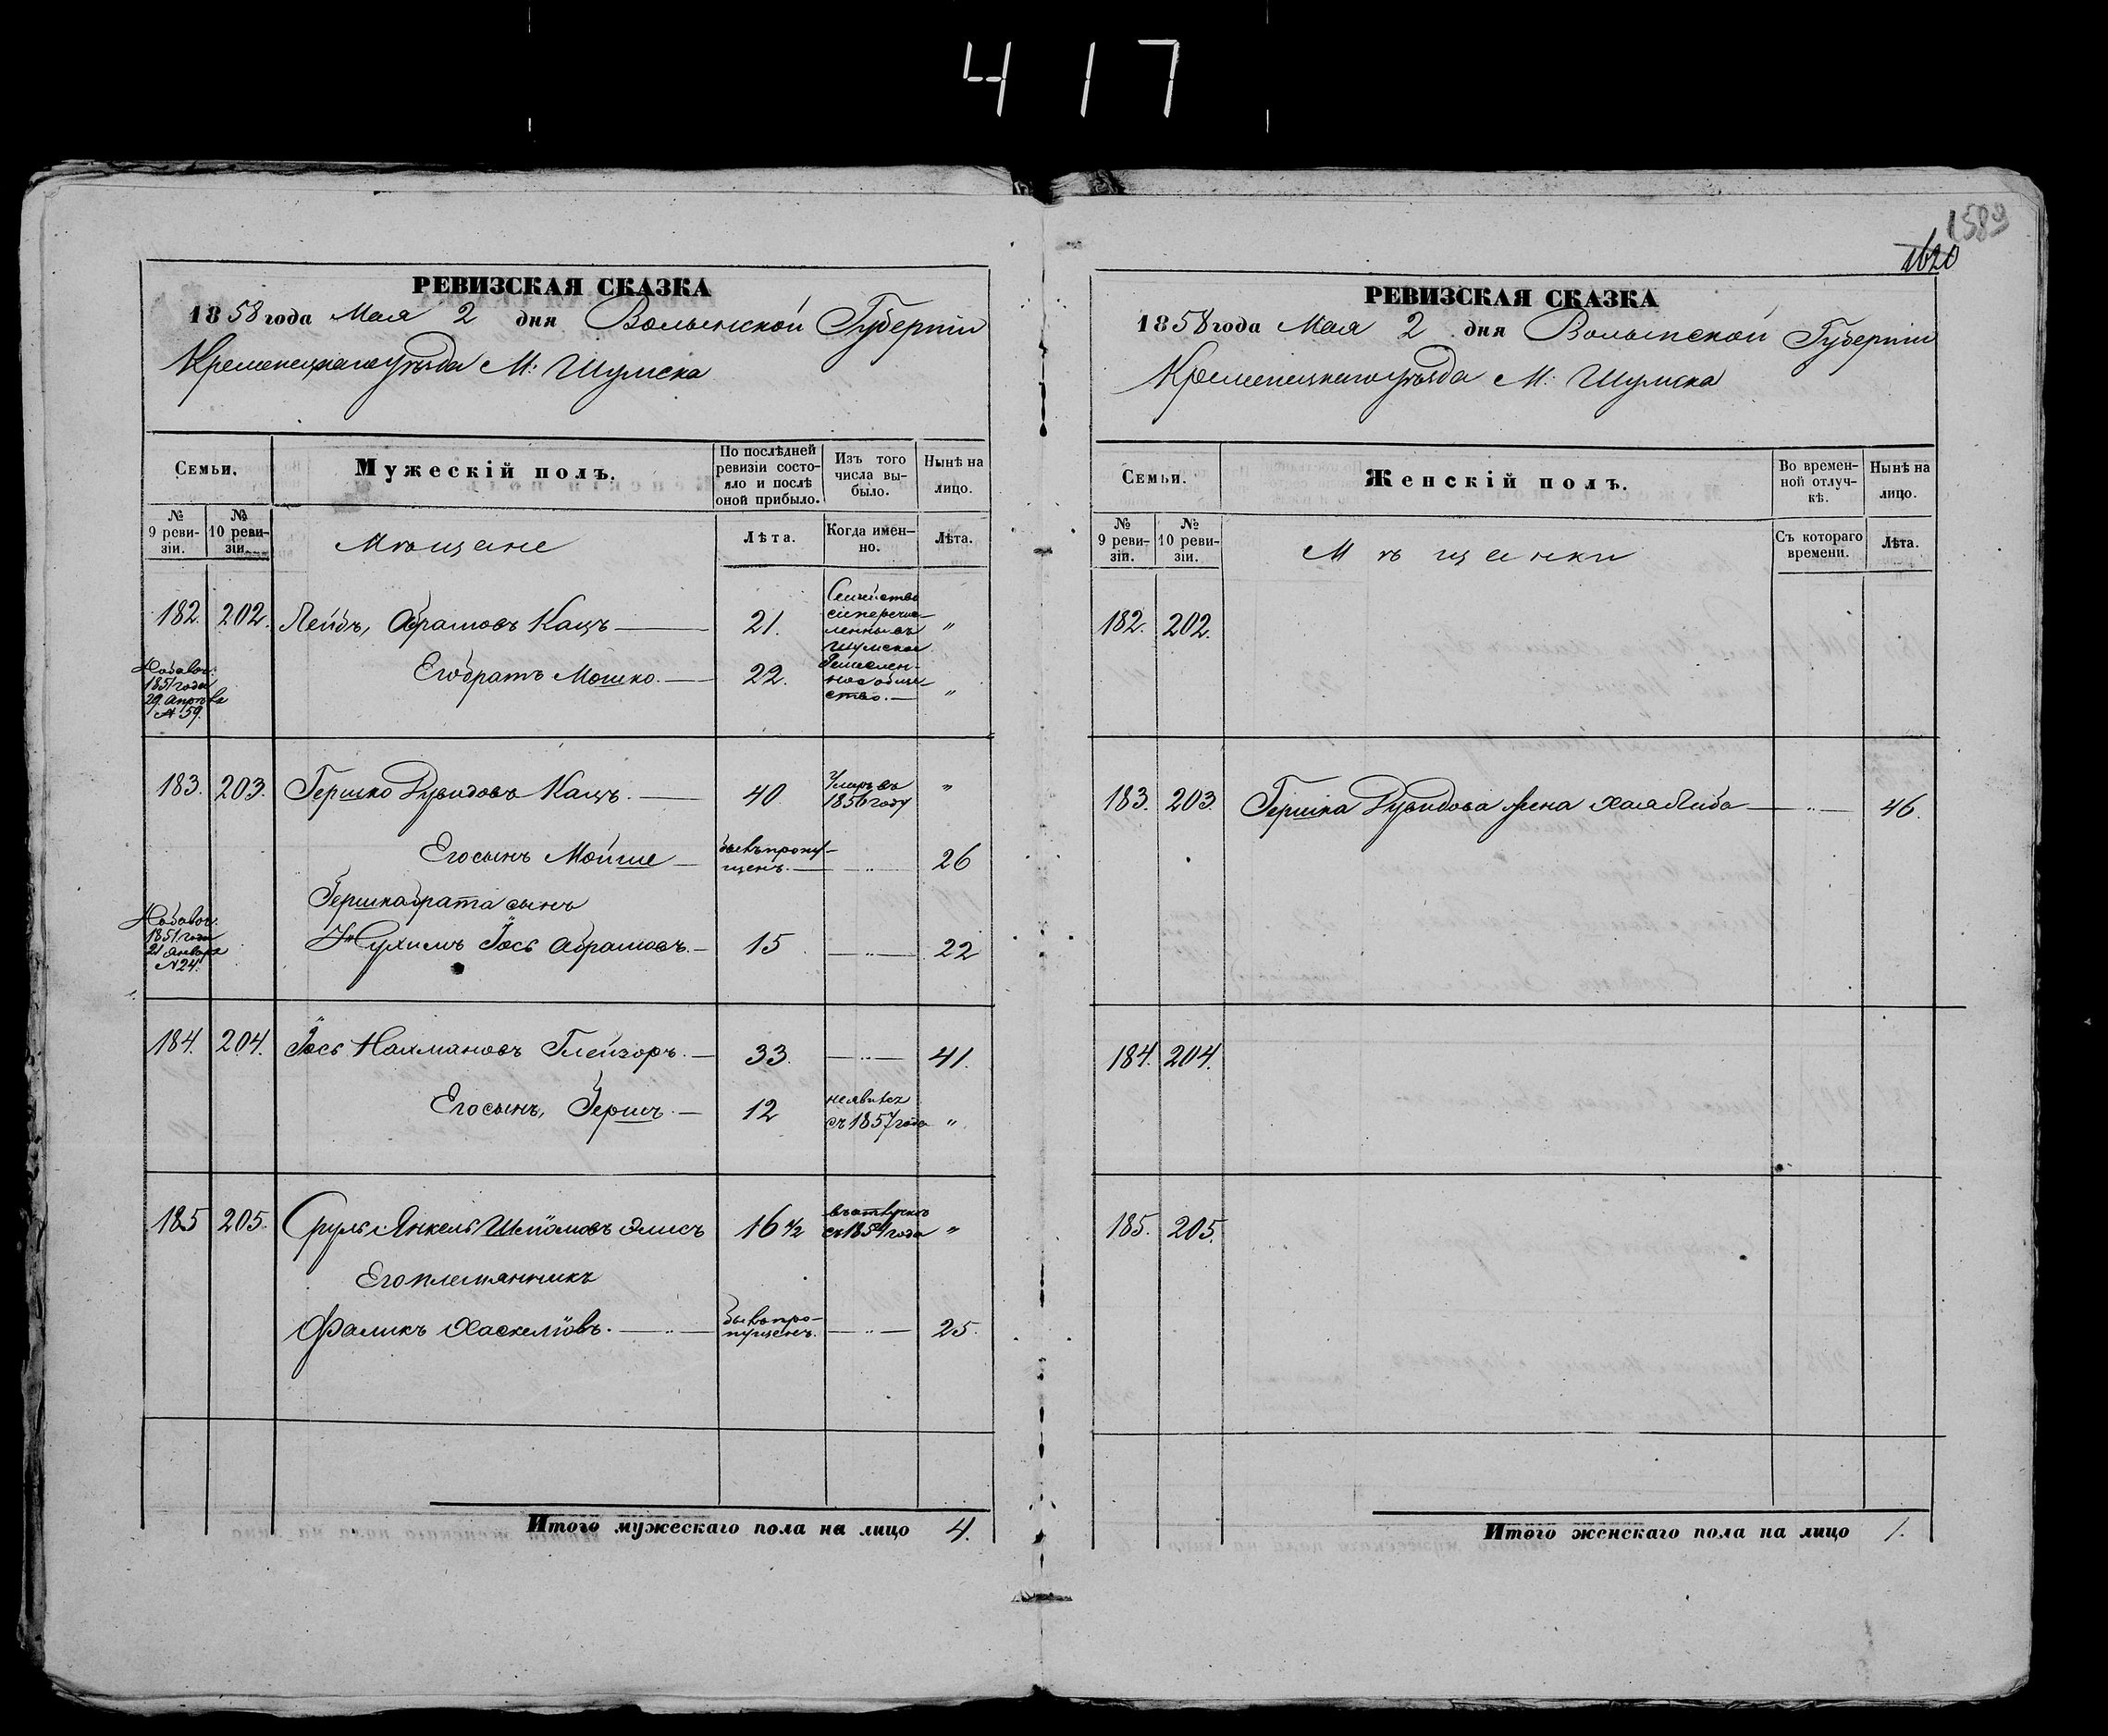 417
1589
1620
РЕВИЗСКАЯ СКАЗКА
1858 года Мая 2 дня Волынской Губернии
Кременецкаго уѣзда М: Шумска
Семьи.
Мужескій полъ.
По послѣдней ревизіи состояло и послѣ оной прибыло.
Изъ того числа выбыло.
Нынѣ на лицо.
№ 9 ревизіи.
№ 10 ревизіи.
Мѣщане
Лѣта.
Когда именно.
Лѣта.
182. 202. Лейбъ, Абрамовъ Кацъ — 21. "
Семейство
сіе перечис-
ленны въ
Шумское
Ремеслен-
ное обще-
ство. —
Его братъ Мошко. — 22. "
Добавоч.
1851 года
№ 59.
183. 203. Гершко Дувидовъ Кацъ. — 40 Умеръ въ 1856 году "
Его сынъ Мойше — бывъ пропу-
щенъ. — — " — 26
Гершка брата сынъ
Нухимъ Іось Абрамовъ. — 15 — " — 22
Добавоч.
1851 года
21 Января
№ 24.
184. 204. Іось Нахмановъ Глейзоръ. — 33. — " — 41.
Его сынъ, Гершъ. — 12 неявился
съ 1857 года "
185 205. Сруль Янкель Шліомовъ 16 1/2 "
Его племянникъ
Фаликъ Хаскеліовъ. — " — бывъ про-
пущенъ. — " — 25.
Итого мужескаго пола на лицо 4.
РЕВИЗСКАЯ СКАЗКА
1858 года Мая 2 дня Волынской Губернии
Кременецкаго уѣзда М: Шумска
Семьи.
Женскій полъ.
Во временной отлучкѣ.
Нынѣ на лицо.
№ 9 ревизіи.
№ 10 ревизіи.
Мѣщанки
Съ котораго времени.
Лѣта.
182. 202.
183. 203. Гершка Дувидова жена Хая Либа — " — 46.
184. 204.
185. 205.
Итого женскаго пола на лицо 1.